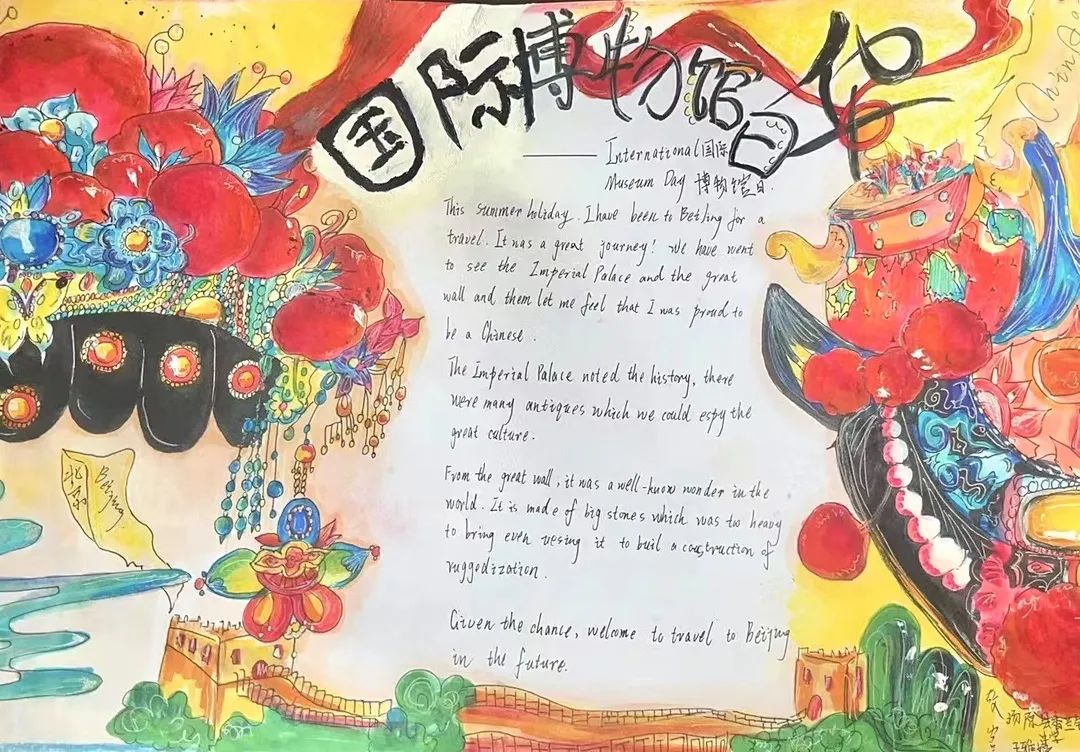 国际博物馆日
International国际
Museum Day 博物馆日.
This summer holiday. I have been to BeiJing for a
travel. It was a great journey! We have went
to see the Imperial Palace and the great
wall and them let me feel that I was proud to
be a Chinese.
The Imperial Palace noted the history, there
were many antiques which we could espy the
great culture.
From the great wall, it was a well-know wonder in the
world. It is made of big stones which was too heavy
to bring even vesing it to buil a construction of
ruggedization.
Given the chance, welcome to travel to Beijing
in the future.
北京
Beijing
China
华